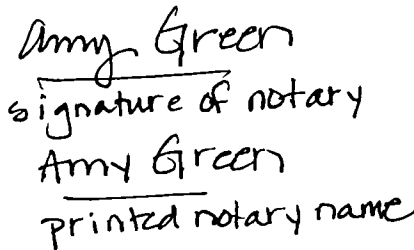 Amy Green
signature of notary
Amy Green
printed notary name